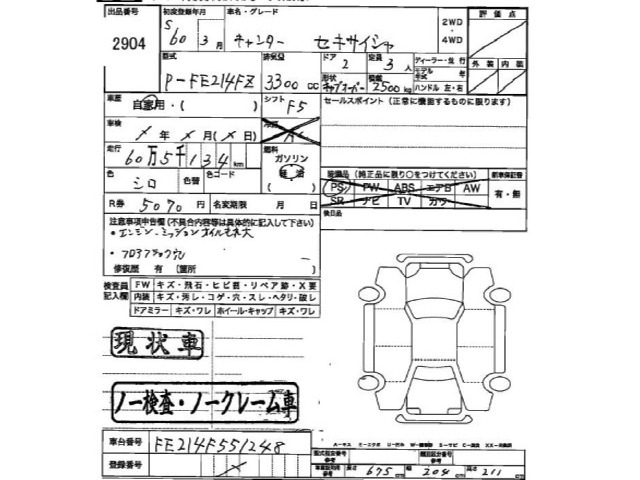 出品番号 初度登録年月 車名・グレード 2WD・4WD 評価点
2904 S60年3月 キャンター セキサイシャ
型式 排気量 ドア 定員 ディーラー・並行 外装 内装
P-FE214FZ 3300cc 2 3人 ハンドル 左・右
形状 積載
キャブオーバー 2500kg
車歴 自家用・( ) シフト F5 セールスポイント (正常に機能するものに限ります)
車検 ×年×月(×日)
走行 60万5千134km 燃料 ガソリン 軽油
装備品(純正品に限り○をつけてください) 新車保証書
PS PW ABS エアB AW 有・無
SR ナビ TV カワ
色 シロ 色替 色コード
後日品
R券 5070円 名変期限 月 日
注意事項申告欄(不具合内容等は具体的に記入して下さい)
・エンジン・ミッションオイルモレ大
・フロアアチコチ穴
修復歴 有(箇所 )
検査員記入欄
FW キズ・飛石・ヒビ・リペア跡・X要
内装 キズ・汚レ・コゲ・穴・スレ・ヘタリ・破レ
ドアミラー キズ・ワレ ホイール・キャップ キズ・ワレ
現状車
ノー検査・ノークレーム車
車台番号 FE214F551248
登録番号
長さ 675cm 幅 204cm 高さ 211cm